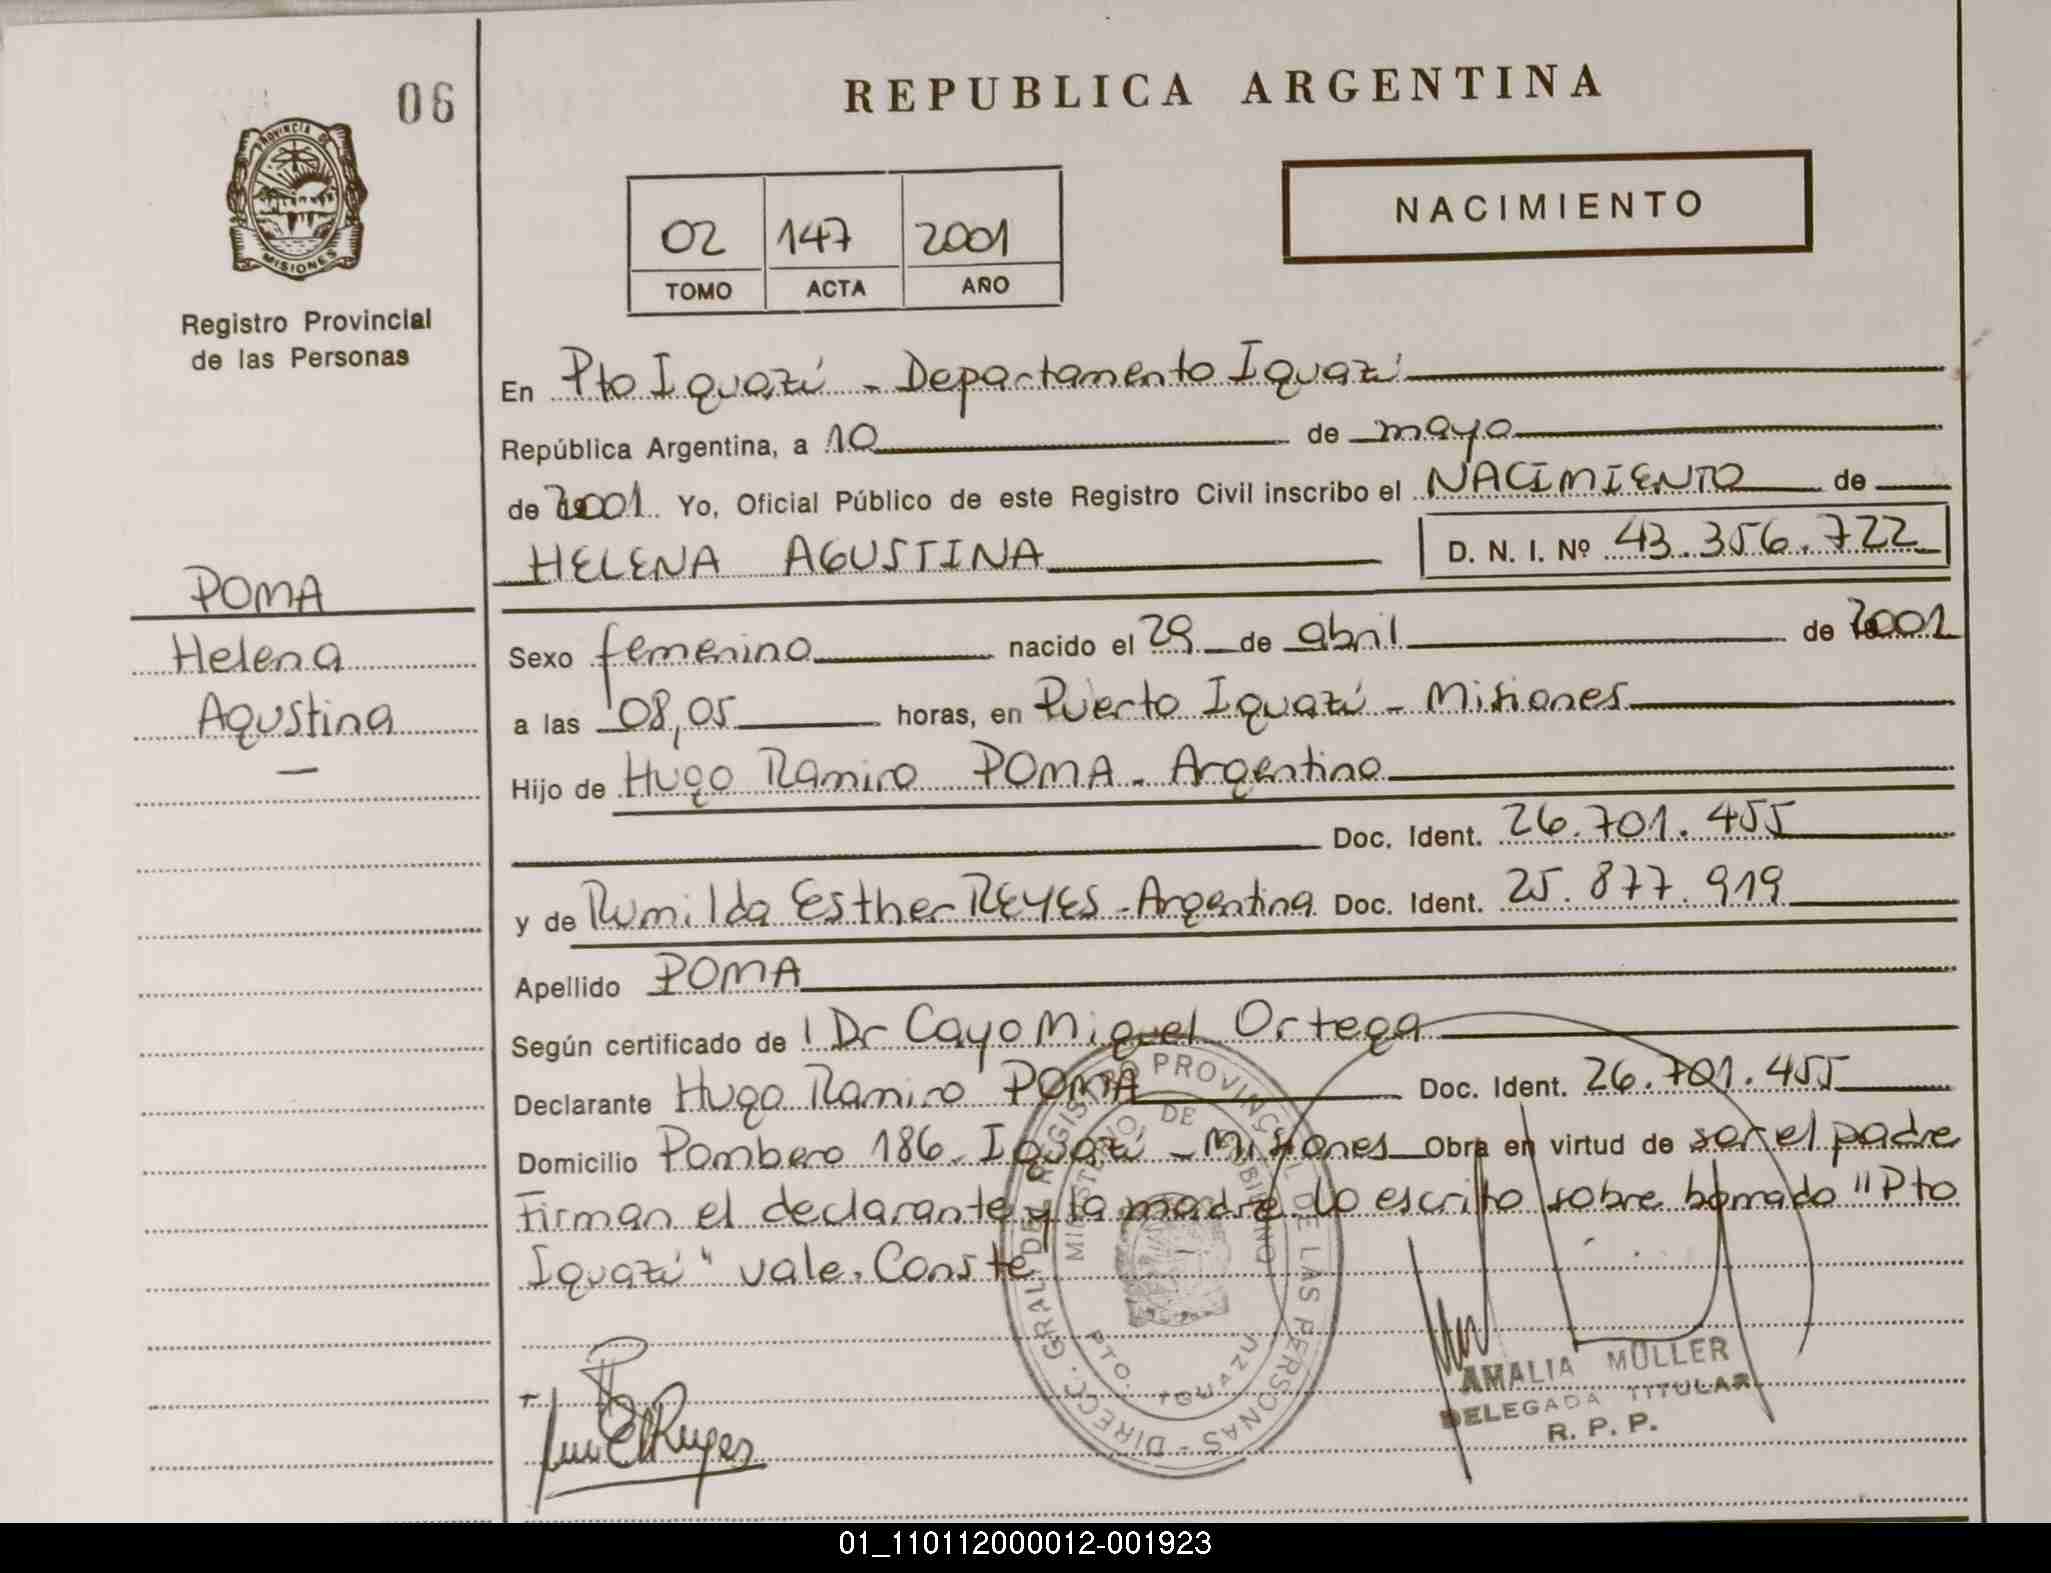 06
REPUBLICA ARGENTINA
NACIMIENTO
02 147 2001
TOMO ACTA AÑO
PROVINCIA DE
MISIONES
Registro Provincial
de las Personas
En Pto Iguazú - Departamento Iguazú
República Argentina, a 10 de mayo
de 2001. Yo, Oficial Público de este Registro Civil inscribo el NACIMIENTO de
HELENA AGUSTINA D. N. I. Nº 43.356.722
POMA
Helena
Agustina
Sexo femenino nacido el 29 de abril de 2001
a las 08,05 horas, en Puerto Iguazú - Misiones
Hijo de Hugo Ramiro POMA - Argentino
Doc. Ident. 26.701.455
y de Rumilda Esther REYES - Argentina Doc. Ident. 25.877.919
Apellido POMA
Según certificado de l Dr Cayo Miguel Ortega
Declarante Hugo Ramiro POMA Doc. Ident. 26.701.455
Domicilio Pombero 186 - Iguazú - Misiones Obra en virtud de ser el padre
Firman el declarante y la madre lo escrito sobre borrado "Pto
Iguazú" vale. Conste
DIRECC. GRAL. DEL REGISTRO PROVINCIAL DE LAS PERSONAS
MINISTERIO DE GOBIERNO
PTO. IGUAZU
AMALIA MÜLLER
DELEGADA TITULAR
R. P. P.
01_110112000012-001923